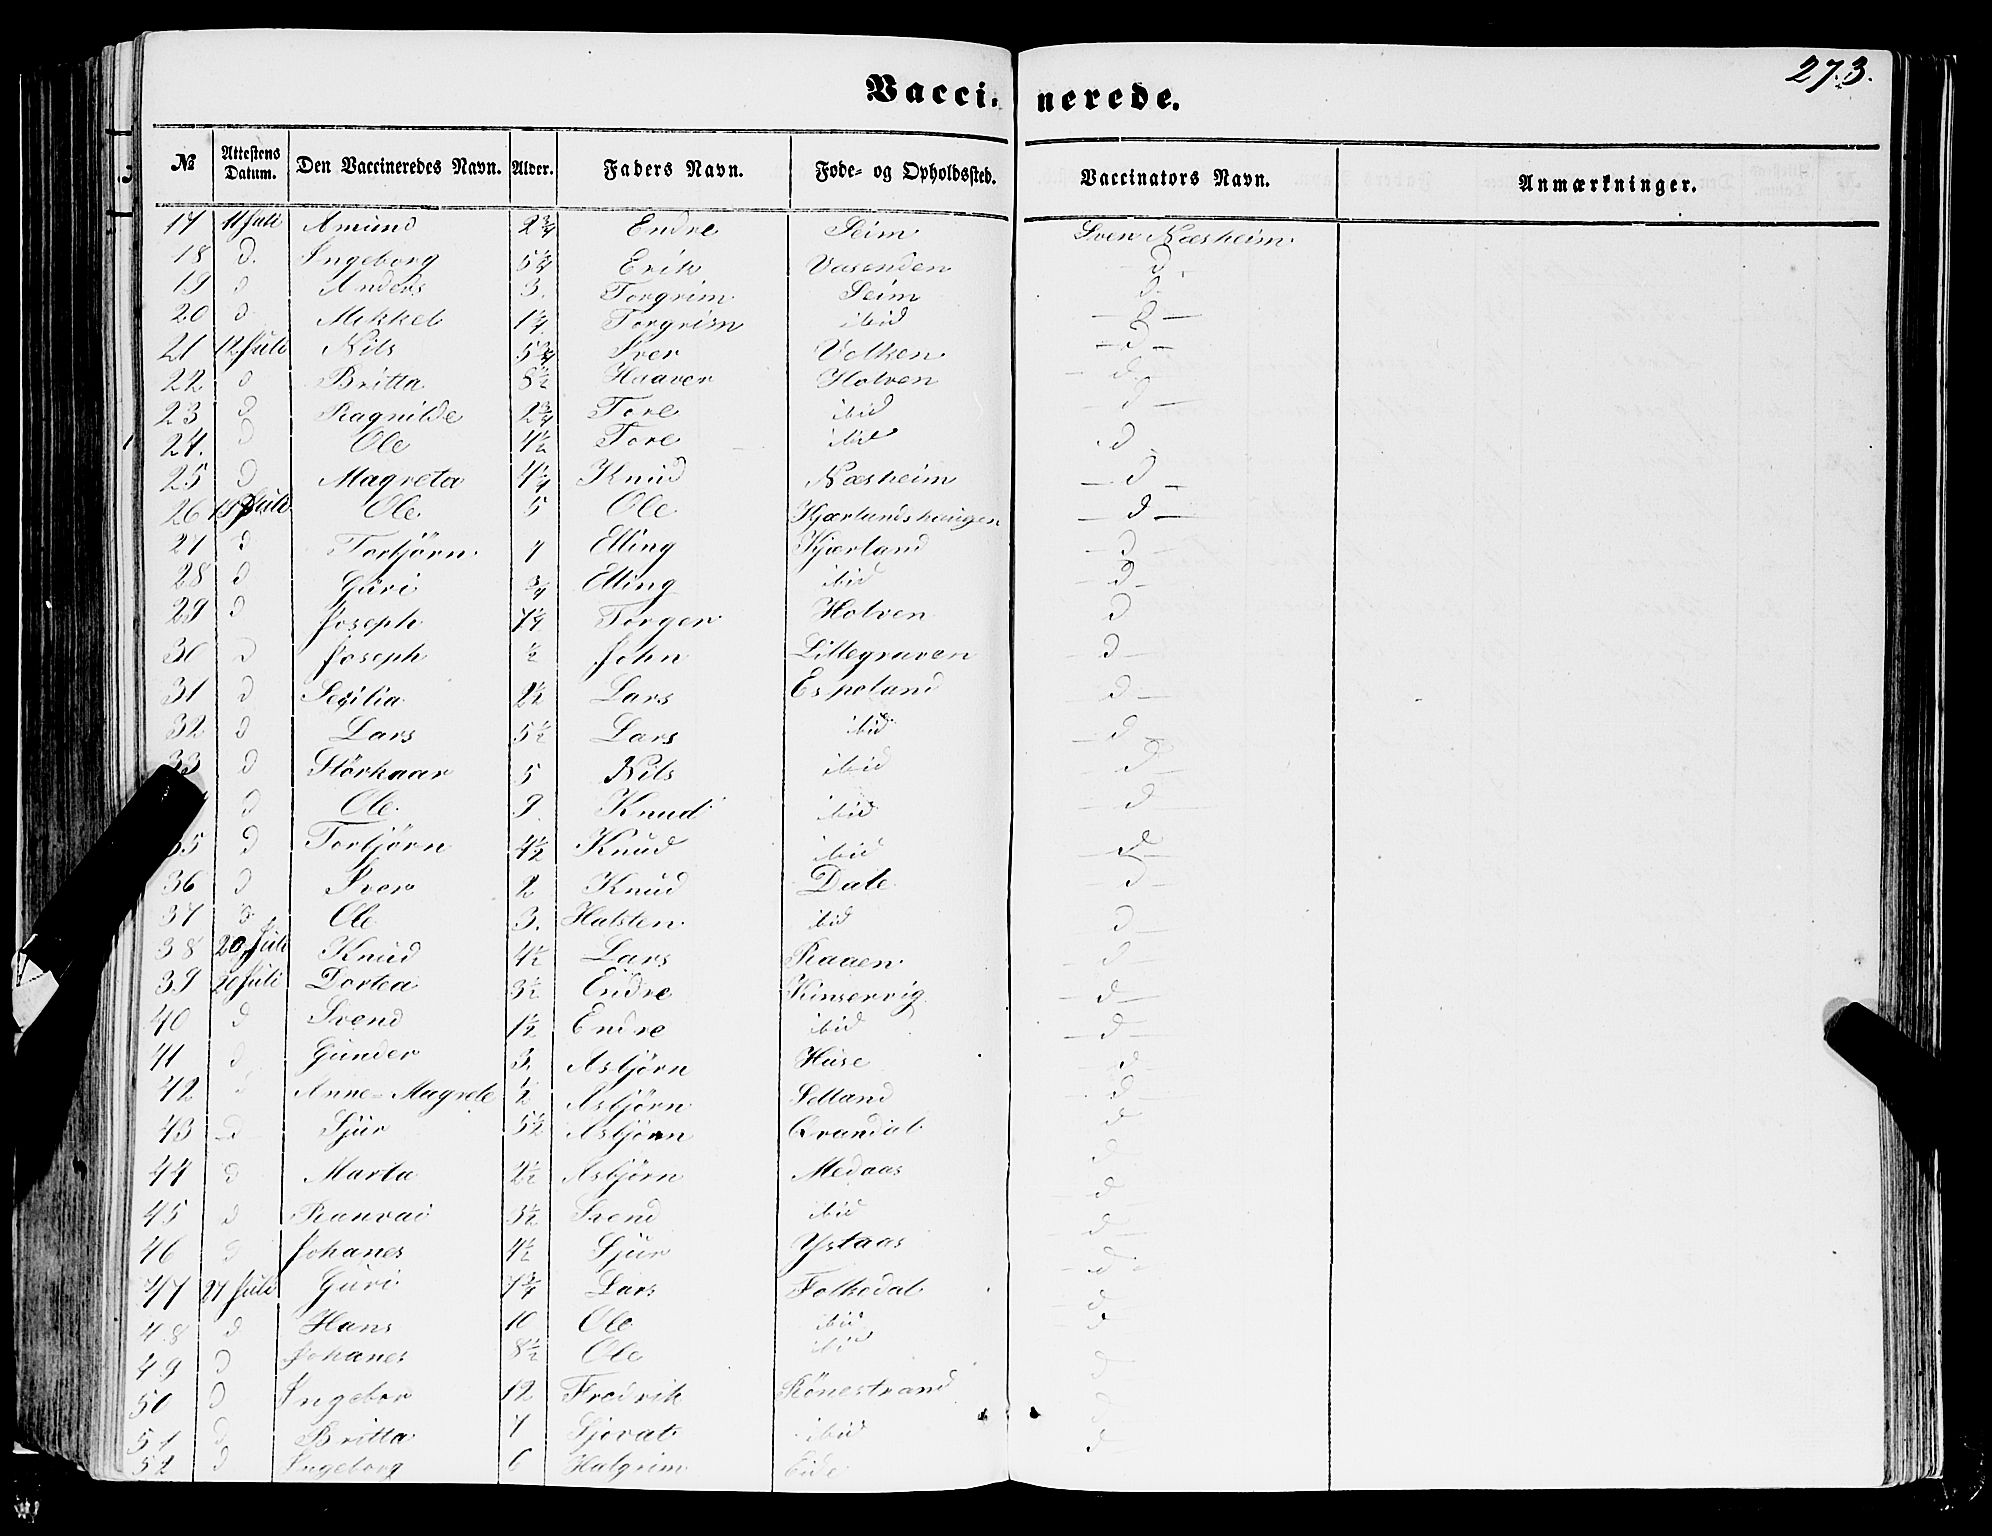 273.
Vaccinerede.
№ Attestens Datum. Den Vaccineredes Navn. Alder. Faders Navn. Fode- og Opholdssted. Vaccinators Navn. Anmærkninger.
17 11 Juli Amund 2 3/4 Endre Seim Sven Næsheim
18 d. Ingeborg 5 3/4 Erik Vasenden d.
19 d Anders 3. Torgrim Seim d.
20 d. Mikkel 1 1/4 Torgrim ibid — d —
21 12 Juli Nils 5 3/4 Sver Velken — d —
22 d Britta 8 1/2 Haaver Holven — d —
23 d Ragnilde 2 3/4 Tore ibid — d —
24. d Ole 4 1/2 Tore ibid d
25 d Magreta 4 1/4 Knud Næsheim — d —
26 Juli Ole 5 Ole Kjærlandshaugen — d —
27 d Torbjörn 7 Elling Kjærland — d —
28 d Guri 3/4 Elling ibid — d —
29 d Joseph 7 1/4 Torger Holven d
30 d Joseph 1/2 John Lillegraven — d —
31 d Secilia 2 1/2 Lars Espeland — d —
32 d Lars 5 1/2 Lars ibid — d —
33 d Störkaar 5 Nils ibid — d —
d Ole 9 Knud ibid — d —
35 d Torbjörn 4 1/2 Knud ibid — d —
36 d Sver 2 Knud Dale — d —
37 d. Ole 3. Halsten ibid — d —
38 20 Juli Knud 4 1/2 Lars Raaen — d —
39 20 Juli Dortea 3 1/2 Endre Kinservig — d —
40 d Svend 1 1/2 Endre ibid — d —
41 d Gunder 3. Asbjörn Huse — d —
42 d Anne-Magrete 1/2 Asbjörn Selland — d —
43 — d — Sjur 5 1/2 Asbjörn Qvandal d
44 d Marta 2 1/2 Asbjörn Medaas — d
45 d Ranvai 3 1/2 Svend ibid — d
46 d Johanes 4 1/2 Sjur Ystaas — d —
47 27 Juli Guri 7 3/4 Lars Folkedal — d
48 d Hans 10 Ole ibid — d —
49 d Johanes 8 1/2 Ole ibid — d —
50 d Ingebor 12 Fredrik Rönestrand d
51 d Britta 7 Sjovat ibid d
52 d Ingeborg 6 Halgrim Eide d